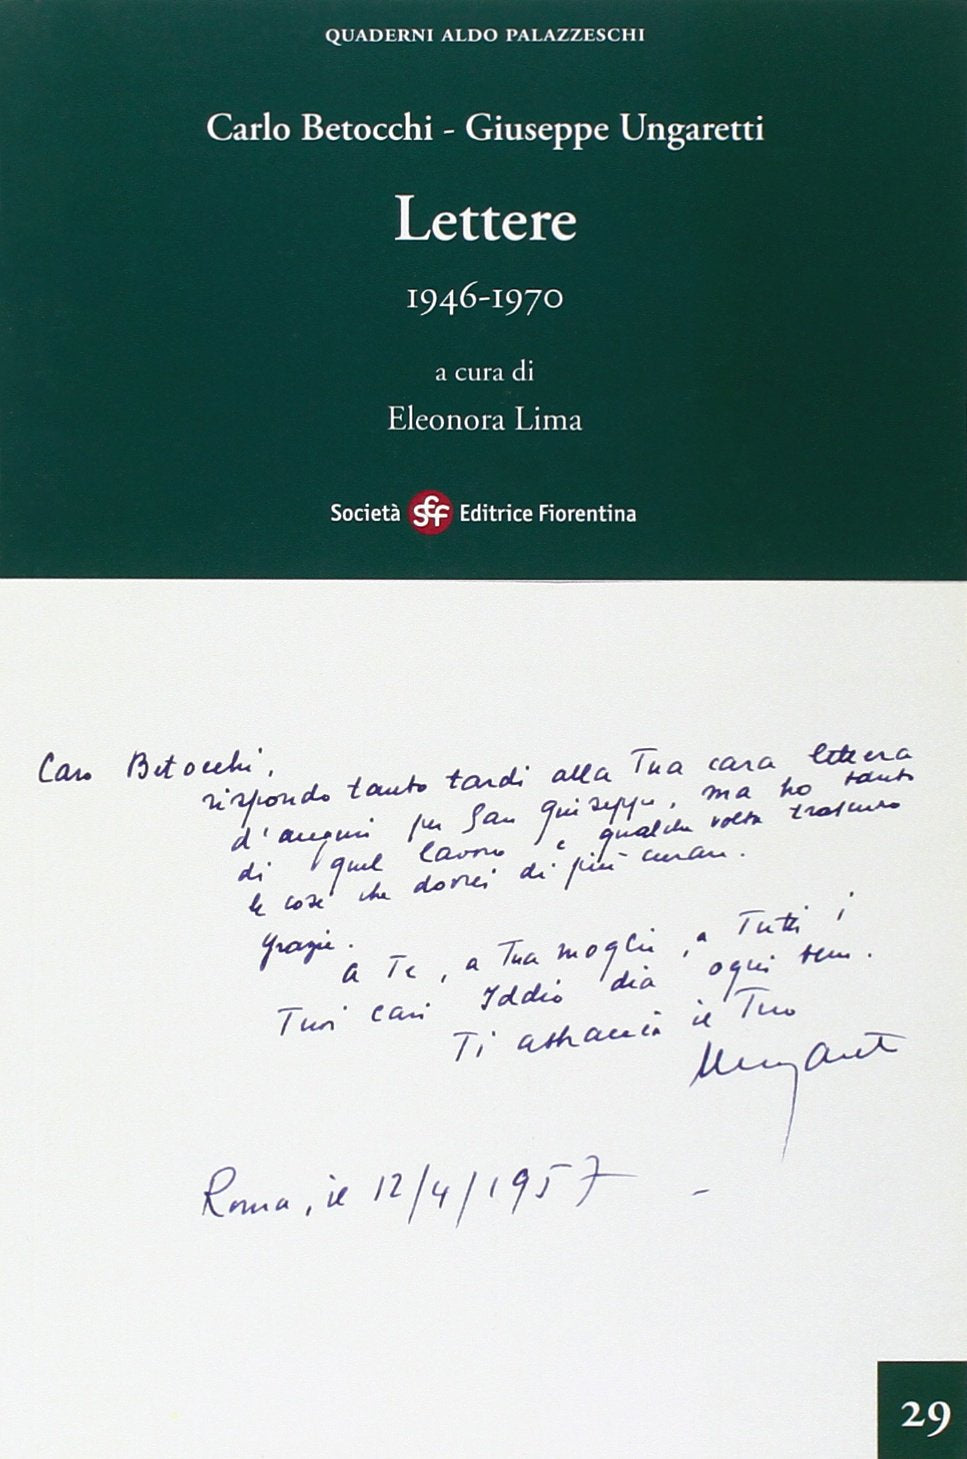 QUADERNI ALDO PALAZZESCHI
Carlo Betocchi - Giuseppe Ungaretti
Lettere
1946-1970
a cura di
Eleonora Lima
Società Editrice Fiorentina
Caro Betocchi,
rispondo tanto tardi alla Tua cara lettera
d'auguri per San Giuseppe, ma ho tanto
di quel lavoro e qualche volta trascuro
le cose che dovrei di più curare.
Grazie.
a Te, a Tua moglie, a Tutti i
Tuoi cari Iddio dia ogni bene.
Ti abbraccia il Tuo
Ungaretti
Roma, il 12/4/1957 -
29